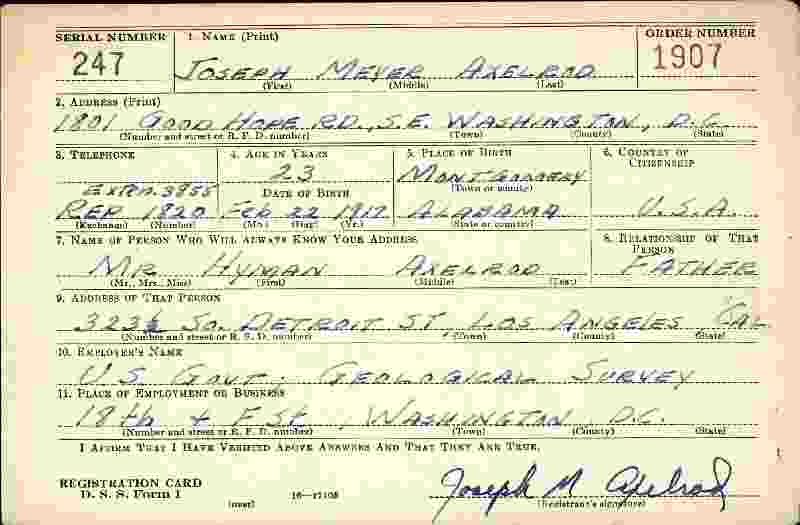 SERIAL NUMBER 1. NAME (Print) ORDER NUMBER
247 JOSEPH MEYER AXELROD 1907
(First) (Middle) (Last)
2. ADDRESS (Print)
1801 GOOD HOPE RD., S.E. WASHINGTON, D.C.
(Number and street or R. F. D. number) (Town) (County) (State)
3. TELEPHONE 4. AGE IN YEARS 5. PLACE OF BIRTH 6. COUNTRY OF CITIZENSHIP
EXTEN. 3955 23 MONTGOMERY
DATE OF BIRTH (Town or county)
REP 1820 FEB 22 1917 ALABAMA U.S.A.
(Exchange) (Number) (Mo.) (Day) (Yr.) (State or country)
7. NAME OF PERSON WHO WILL ALWAYS KNOW YOUR ADDRESS 8. RELATIONSHIP OF THAT PERSON
MR HYMAN AXELROD FATHER
(Mr., Mrs., Miss) (First) (Middle) (Last)
9. ADDRESS OF THAT PERSON
323½ SO. DETROIT ST LOS ANGELES CAL
(Number and street or R. F. D. number) (Town) (County) (State)
10. EMPLOYER'S NAME
U.S. GOVT, GEOLOGICAL SURVEY
11. PLACE OF EMPLOYMENT OR BUSINESS
18th + F St, WASHINGTON D.C.
(Number and street or R. F. D. number) (Town) (County) (State)
I AFFIRM THAT I HAVE VERIFIED ABOVE ANSWERS AND THAT THEY ARE TRUE.
REGISTRATION CARD
D. S. S. Form 1 (over) 16-17105 Joseph M Axelrod
(Registrant's signature)